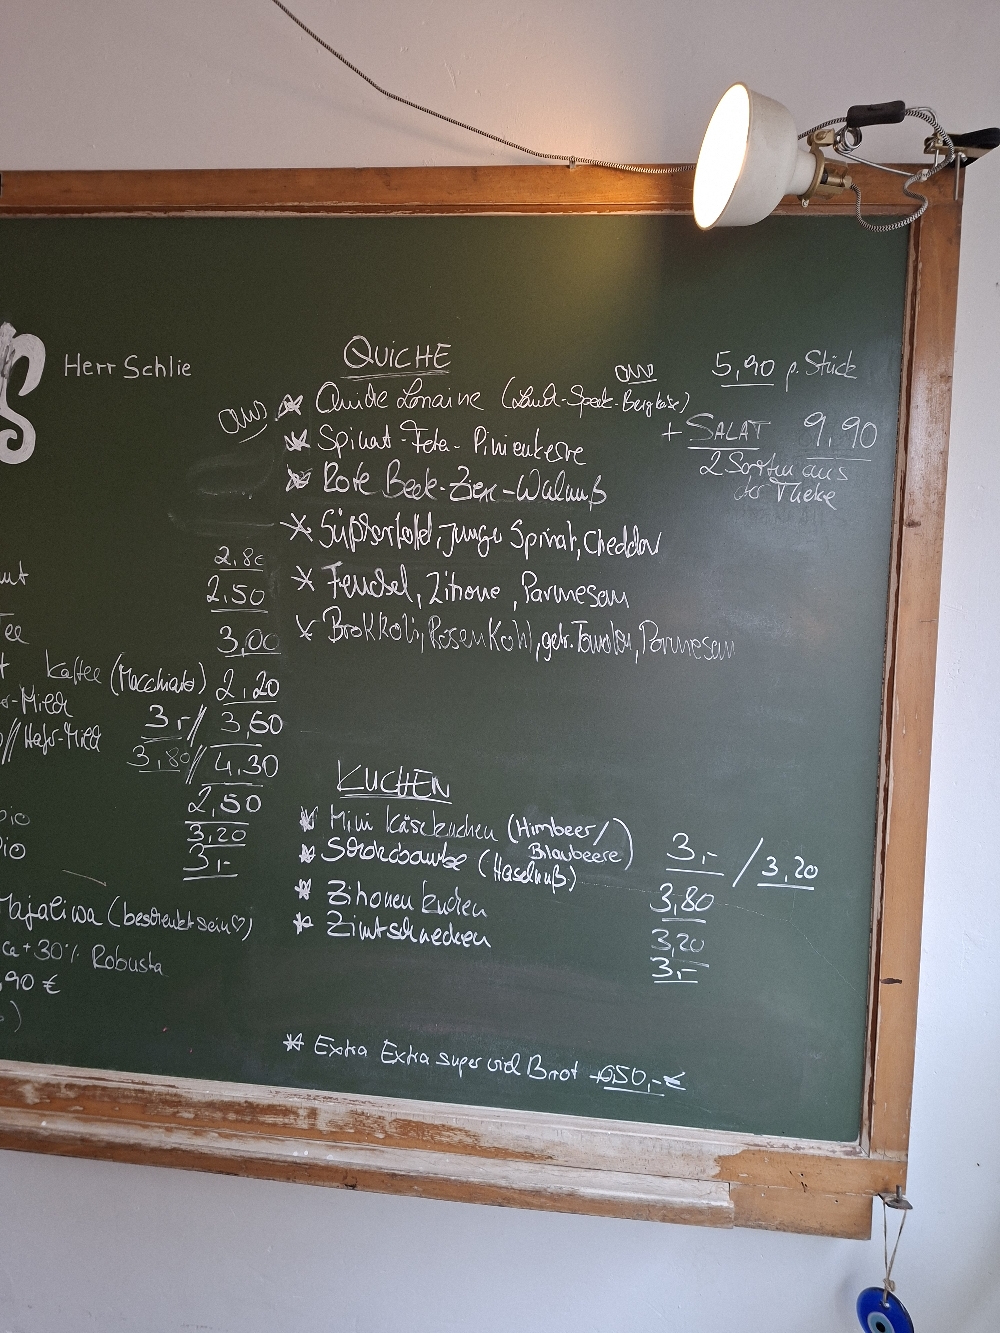 Herr Schlie
QUICHE
5,90 p. Stück
aus
aus
* Quiche Lorraine (Lauch-Speck-Bergkäse)
+ SALAT 9,90
2 Sorten aus
der Theke
* Spinat-Feta-Pinienkerne
* Rote Beete-Ziege-Walnuß
* Süßkartoffel, junge Spinat, Cheddar
* Fenchel, Zitrone, Parmesan
* Brokkoli, Rosenkohl, getr. Tomaten, Parmesan
2,80
2,50
Tee 3,00
Kaffee (Macchiato) 2,20
-Milch 3,-// 3,60
// Hafer-Milch 3,80// 4,30
2,50
3,20
3,-
Majaliwa (beschenkt sein♡)
ca + 30% Robusta
,90 €
KUCHEN
* Mini Käsekuchen (Himbeer/
Blaubeere) 3,- / 3,20
* Schokobombe (Haselnuß) 3,80
* Zitronenkuchen 3,20
* Zimtschnecken 3,-
* Extra Extra super viel Brot +0,50,-€